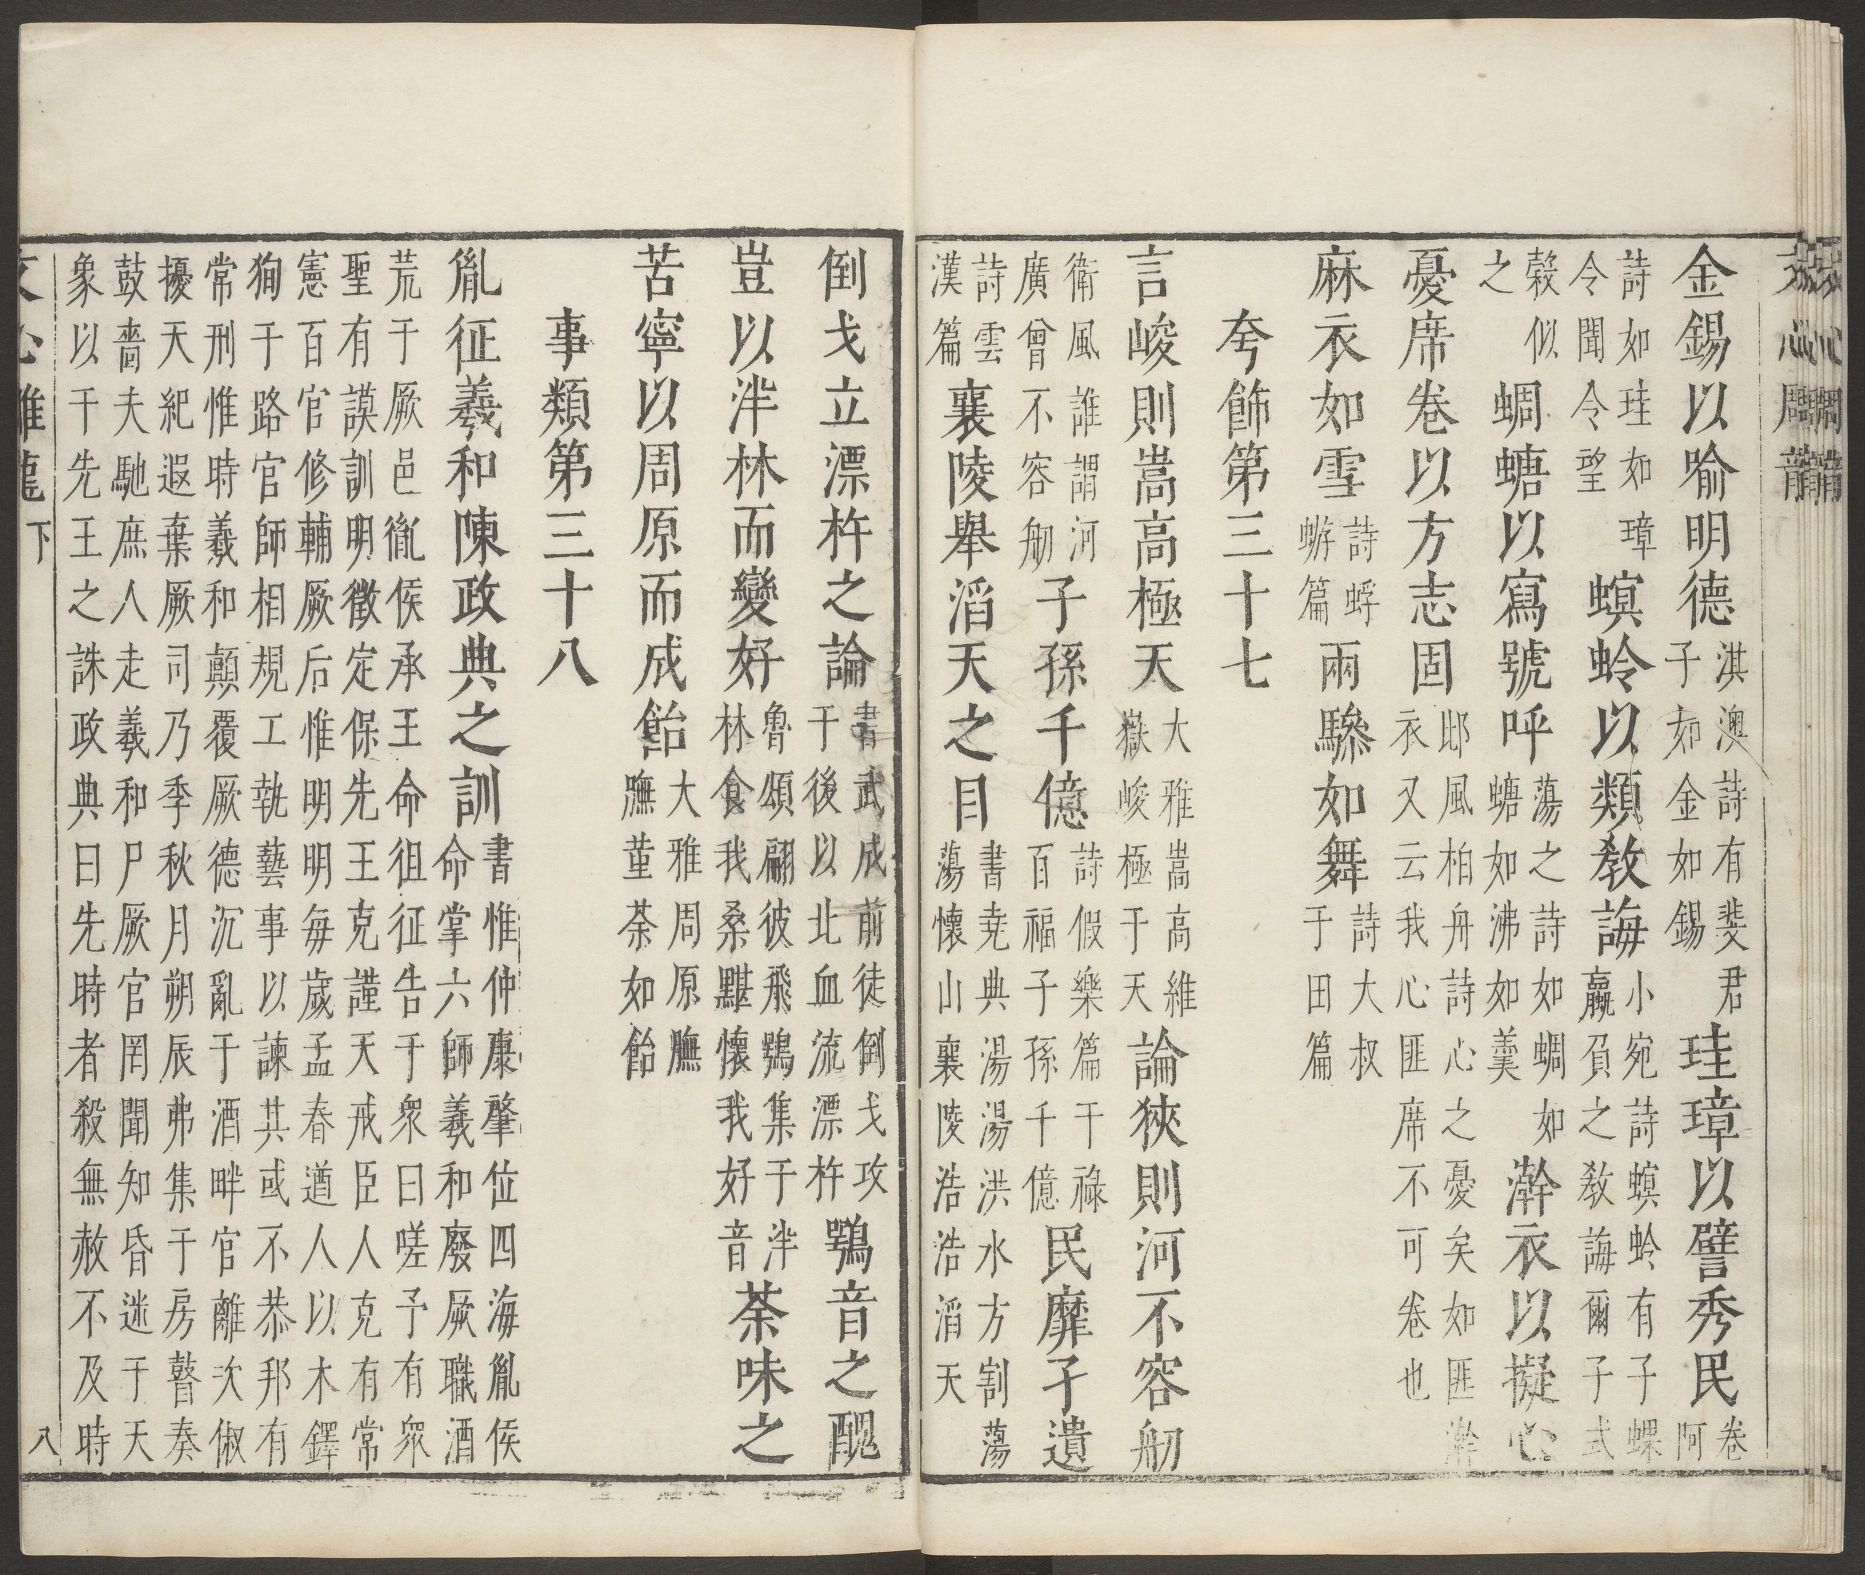 金錫以喻明德淇澳詩有斐君子如金如錫珪璋以譬秀民卷阿
詩如珪如璋令聞令望螟蛉以類教誨小宛詩螟蛉有子蜾蠃負之教誨爾子式
穀似之蜩螗以寫號呼蕩之詩如蜩如螗如沸如羹澣衣以擬心
憂席卷以方志固邶風柏舟詩心之憂矣如匪澣衣又云我心匪席不可卷也
麻衣如雪詩蜉蝣篇兩驂如舞詩大叔于田篇
夸飾第三十七
言峻則嵩高極天大雅嵩高維嶽峻極于天論狹則河不容舠
衛風誰謂河廣曾不容舠子孫千億詩假樂篇干祿百福子孫千億民靡孑遺
詩雲漢篇襄陵舉滔天之目書堯典湯湯洪水方割蕩蕩懷山襄陵浩浩滔天
倒戈立漂杵之論書武成前徒倒戈攻于後以北血流漂杵鴞音之醜
豈以泮林而變好魯頌翩彼飛鴞集于泮林食我桑黮懷我好音荼味之
苦寧以周原而成飴大雅周原膴膴菫荼如飴
事類第三十八
胤征羲和陳政典之訓書惟仲康肇位四海胤侯命掌六師羲和廢厥職酒
荒于厥邑胤侯承王命徂征告于衆曰嗟予有衆
聖有謨訓明徵定保先王克謹天戒臣人克有常
憲百官修輔厥后惟明明每歲孟春遒人以木鐸
狥于路官師相規工執藝事以諫其或不恭邦有
常刑惟時羲和顛覆厥德沉亂于酒畔官離次俶
擾天紀遐棄厥司乃季秋月朔辰弗集于房瞽奏
鼓嗇夫馳庶人走羲和尸厥官罔聞知昏迷于天
象以干先王之誅政典曰先時者殺無赦不及時
文心雕龍下 八